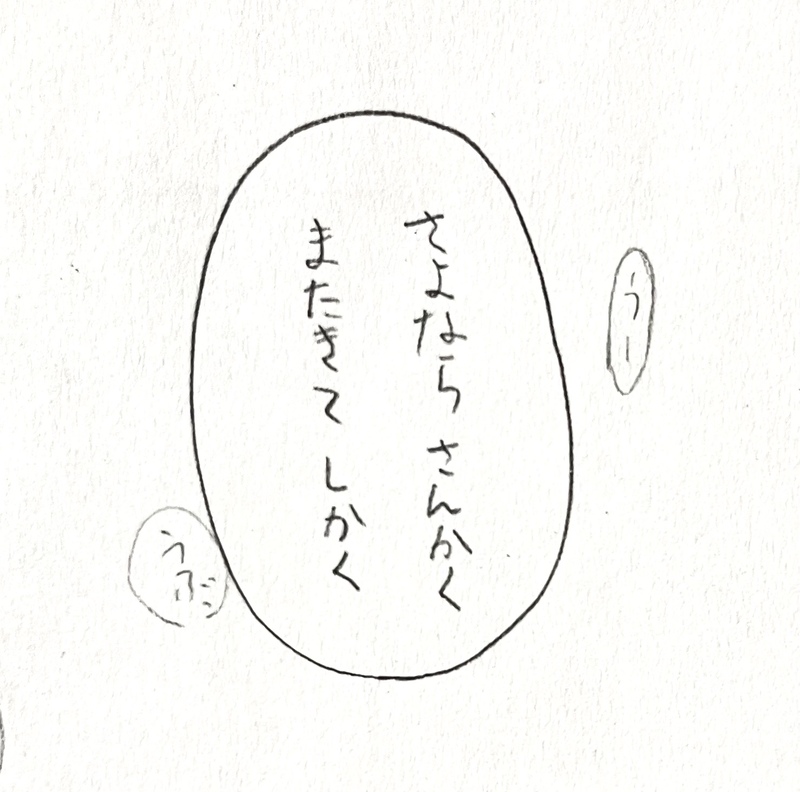 うー
さよなら さんかく
またきて しかく
うぶ